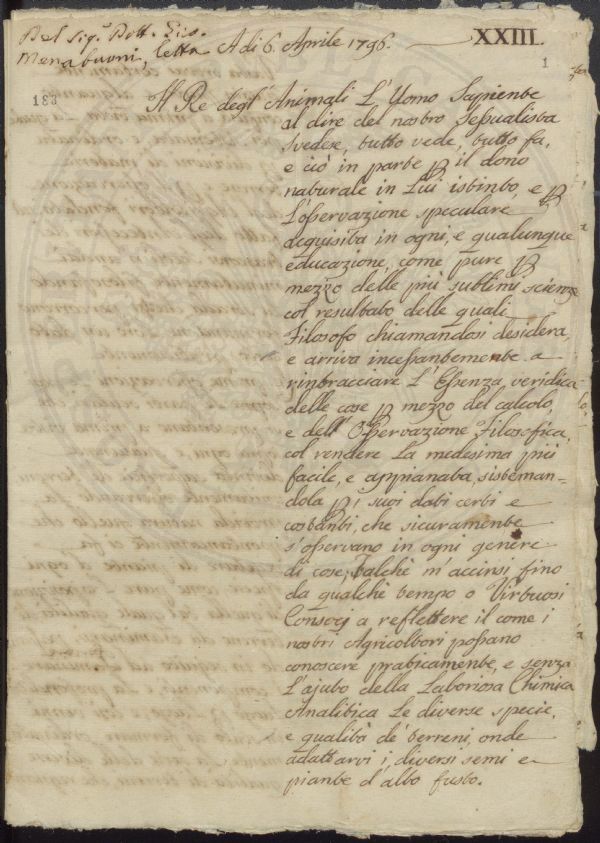 Del Sig.r Dott. Gio.
Menabuoni, letta A di 6. Aprile 1796.
XXIII.
1
183
Il Re degl' Animali L'Uomo Sapiente
al dire del nostro Sessualista
Svedese, tutto vede, tutto fa,
e ciò in parte p il dono
naturale in Lui istinto, e p
L'osservazione speculare
acquisita in ogni, e qualunque
educazione, come pure p
mezzo delle più sublimi scienze
col resultato delle quali
Filosofo chiamandosi desidera,
e arriva incessantemente a
rintracciare L'Essenza veridica
delle cose p mezzo del calcolo,
e dell' Osservazione Filosofica,
col rendere La medesima più
facile, e appianata, sisteman-
dola p i suoi dati certi e
costanti, che sicuramente
s'osservano in ogni genere
di cose; talchè m'accinsi fino
da qualche tempo o Virtuosi
Consocj a reflettere il come i
nostri Agricoltori possano
conoscere praticamente, e senza
L'ajuto della Laboriosa Chimica
Analitica Le diverse specie,
e qualità de' terreni, onde
adattarvi i diversi semi e
piante d'alto fusto.